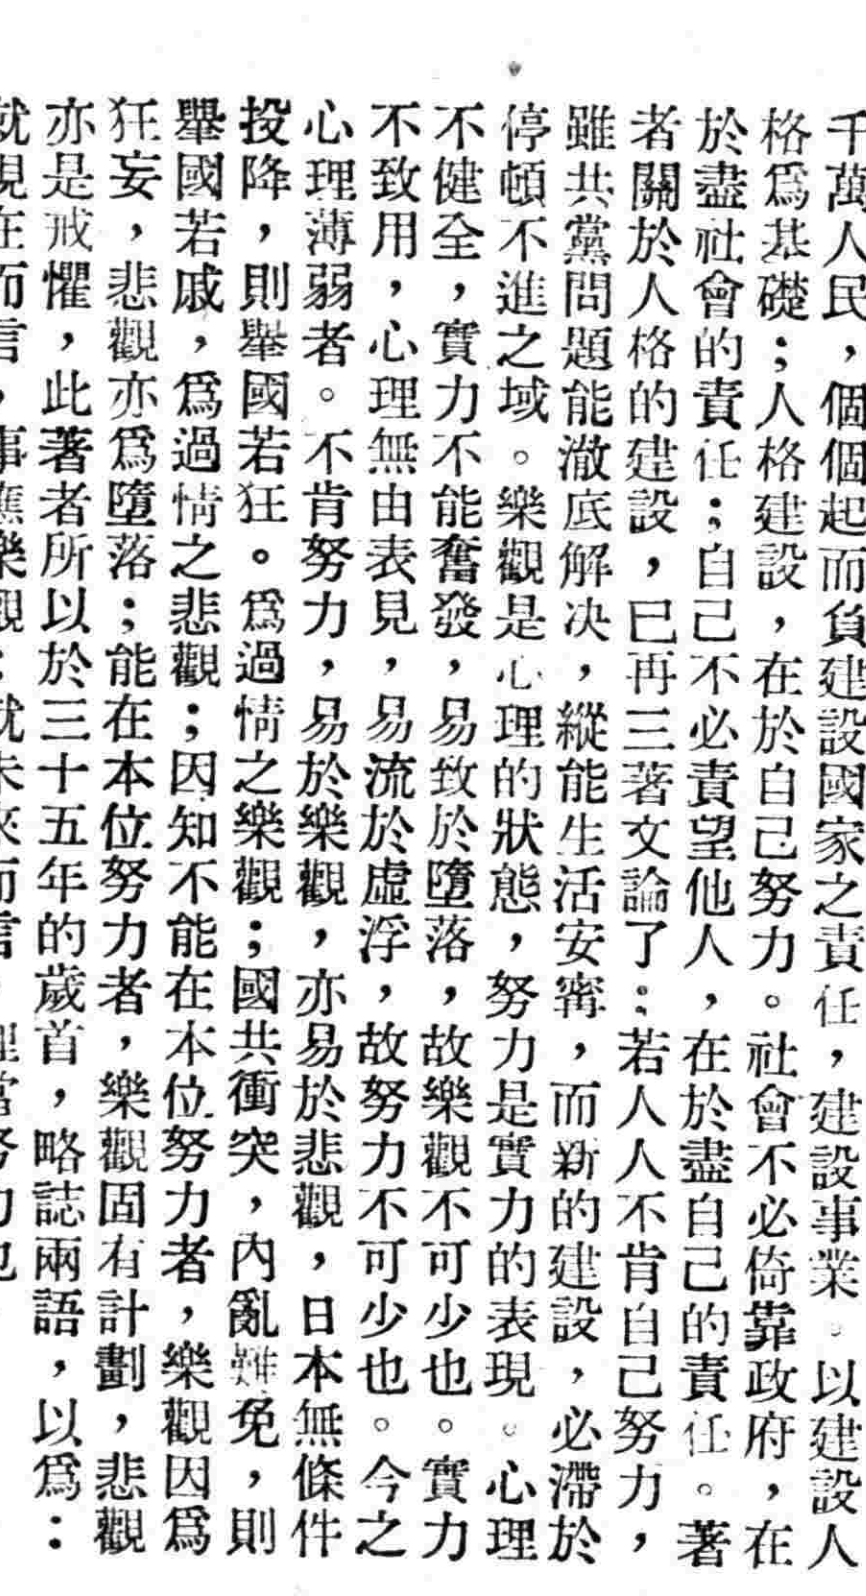 千萬人民，個個起而負建設國家之責任，建設事業。以建設人
格爲基礎；人格建設，在於自己努力。社會不必倚靠政府，在
於盡社會的責任；自己不必責望他人，在於盡自己的責任。著
者關於人格的建設，已再三著文論了：若人人不肯自己努力，
雖共黨問題能澈底解决，縱能生活安甯，而新的建設，必滯於
停頓不進之域。樂觀是心理的狀態，努力是實力的表現。心理
不健全，實力不能奮發，易致於墮落，故樂觀不可少也。實力
不致用，心理無由表見，易流於虛浮，故努力不可少也。今之
心理薄弱者。不肯努力，易於樂觀，亦易於悲觀，日本無條件
投降，則舉國若狂。爲過情之樂觀；國共衝突，內亂難免，則
舉國若戚，爲過情之悲觀；因知不能在本位努力者，樂觀因爲
狂妄，悲觀亦爲墮落；能在本位努力者，樂觀固有計劃，悲觀
亦是戒懼，此著者所以於三十五年的歲首，略誌兩語，以爲：
就現在而言，事應樂觀；就未來而言，理當努力也